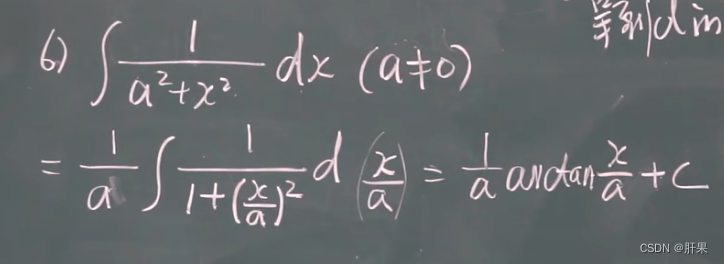 6) ∫ 1/(a²+x²) dx (a≠0)
= 1/a ∫ 1/(1+(x/a)²) d(x/a) = 1/a arctan x/a + C
CSDN @肝果